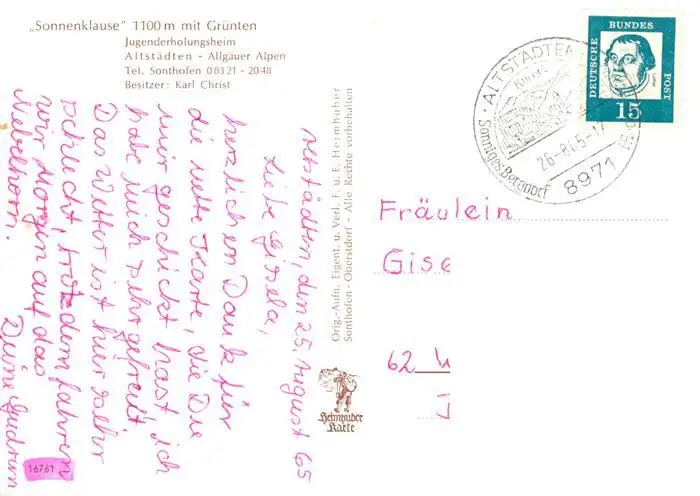 „Sonnenklause" 1100 m mit Grünten
Jugenderholungsheim
Altstädten - Allgäuer Alpen
Tel. Sonthofen 08321 - 2048
Besitzer: Karl Christ
Altstädten, den 25. August 65
Liebe Gisela,
herzlichen Dank für
die nette Karte, die Du
mir geschickt hast, ich
habe mich sehr gefreut.
Das Wetter ist hier sehr
schlecht, trotzdem fahren
wir Morgen auf das
Nebelhorn.
Deine Gudrun
Orig.-Aufn. Eigent. u. Verl. F. u. E. Heimhuber
Sonthofen - Oberstdorf - Alle Rechte vorbehalten
Heimhuber
Karte
ALTSTÄDTEN
Sonniges Bergdorf
8971
DEUTSCHE
BUNDES
POST
15
Fräulein
Gise
62 W
16761